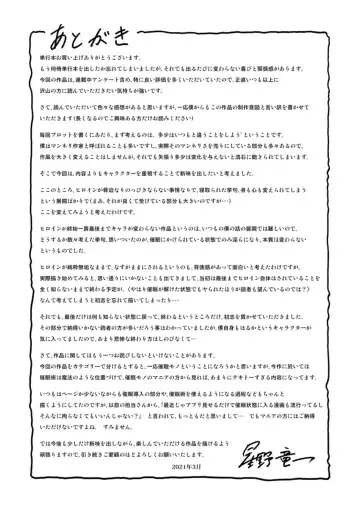 あとがき
単行本お買い上げありがとうございます。
もう何冊単行本を出したか忘れてしまいましたが、それでも出るたびに変わらない喜びと緊張感があります。
今回の作品は、連載中アンケート含め、特に良い評価を多くいただいていたので、正直いつも以上に
沢山の方に読んでいただきたい気持ちが強いです。
さて、読んでいただいて色々な感想があると思いますが、一応僕からもこの作品の制作意図と言い訳を書かせて
いただきます(長くなるのでご興味ある方だけお読みください)
毎回プロットを書くにあたり、まず考えるのは、多少はいつもと違うことをしよう"ということです。
僕はマンネリ作家と呼ばれることも多いですし、実際そのマンネリさを売りにしている部分も多々あるので、
作風を大きく変えることはしませんが、それでも矢張り多少は変化を与えないと流石に飽きられてしまいます。
そこで今回は、内容よりもキャラクターを重視することで新味を出したいと考えました。
ここのところ、ヒロインが脅迫なりのっぴきならない事情なりで、寝取られた挙句、身も心も変えられてしまう
という展開ばかりで(まあ、それが良くて受けている部分も大きいのですが…)
ここを変えてみようと考えたわけです。
ヒロインが終始一貫最後までキャラが変わらない作品というのは、いつもの僕の話の展開では難しいので、
どうするか散々考えた挙句、思いついたのが、催眠にかけられている状態でのみ淫らになり、本質は変わらない
というものでした。
ヒロインが純粋無垢なままで、なすがままにされるというのも、背徳感があって面白いと考えたわけですが、
実際描き始めてみると、思い通りにいかないことも出てきまして、当初は最後までヒロイン自体はされていることを
全く知らないままで終わる予定が、(やはり催眠が解けた状態でもヤられたほうが読者も望んでいるのでは?)
なんて考えてしまうと初志を忘れて描いてしまったり・・・
それでも、最後だけは何も知らない状態に戻って、終わるというところだけ、初志を貫かせていただきました。
その部分で納得いかない読者の方が多いだろう事はわかっていましたが、僕自身もはるかというキャラクターが
気に入ってましたので、あまり悲惨な終わり方はしのびなくて・・
さて、作品に関してはもう一つお詫びしないといけないことがあります。
今回の作品をカテゴリーで分けるとすると、一応催眠モノということになろうかと思いますが、今作に於いては
催眠術は魔法のような位置づけで、催眠モノのマニアの方から見れば、あまりにテキトーすぎる内容になってます。
いつもはページが少ないながらも催眠導入の部分や、催眠術を使えるようになる過程などもちゃんと
描くようにしてたのですが、以前の担当さんから、「最近じゃアプリ見せるだけで催眠状態に入る漫画も流行ってるし
そんなに拘らなくてもいいんじゃない?」 と言われて、もっともだと思いまして… でもマニアの方にはご納得
いただけないですよね すみません。
では今後も少しだけ新味を出しながら、楽しんでいただける作品を描けるよう
頑張りますので、引き続きご愛顧のほどよろしくお願いいたします。
2021年3月
星野竜一